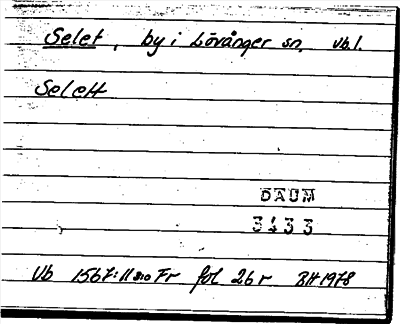 Selet, by i Lövånger sn. vb l.
Selett
DAUM
3433
Vb 1567:11 Fr fol 26 r BH 1978